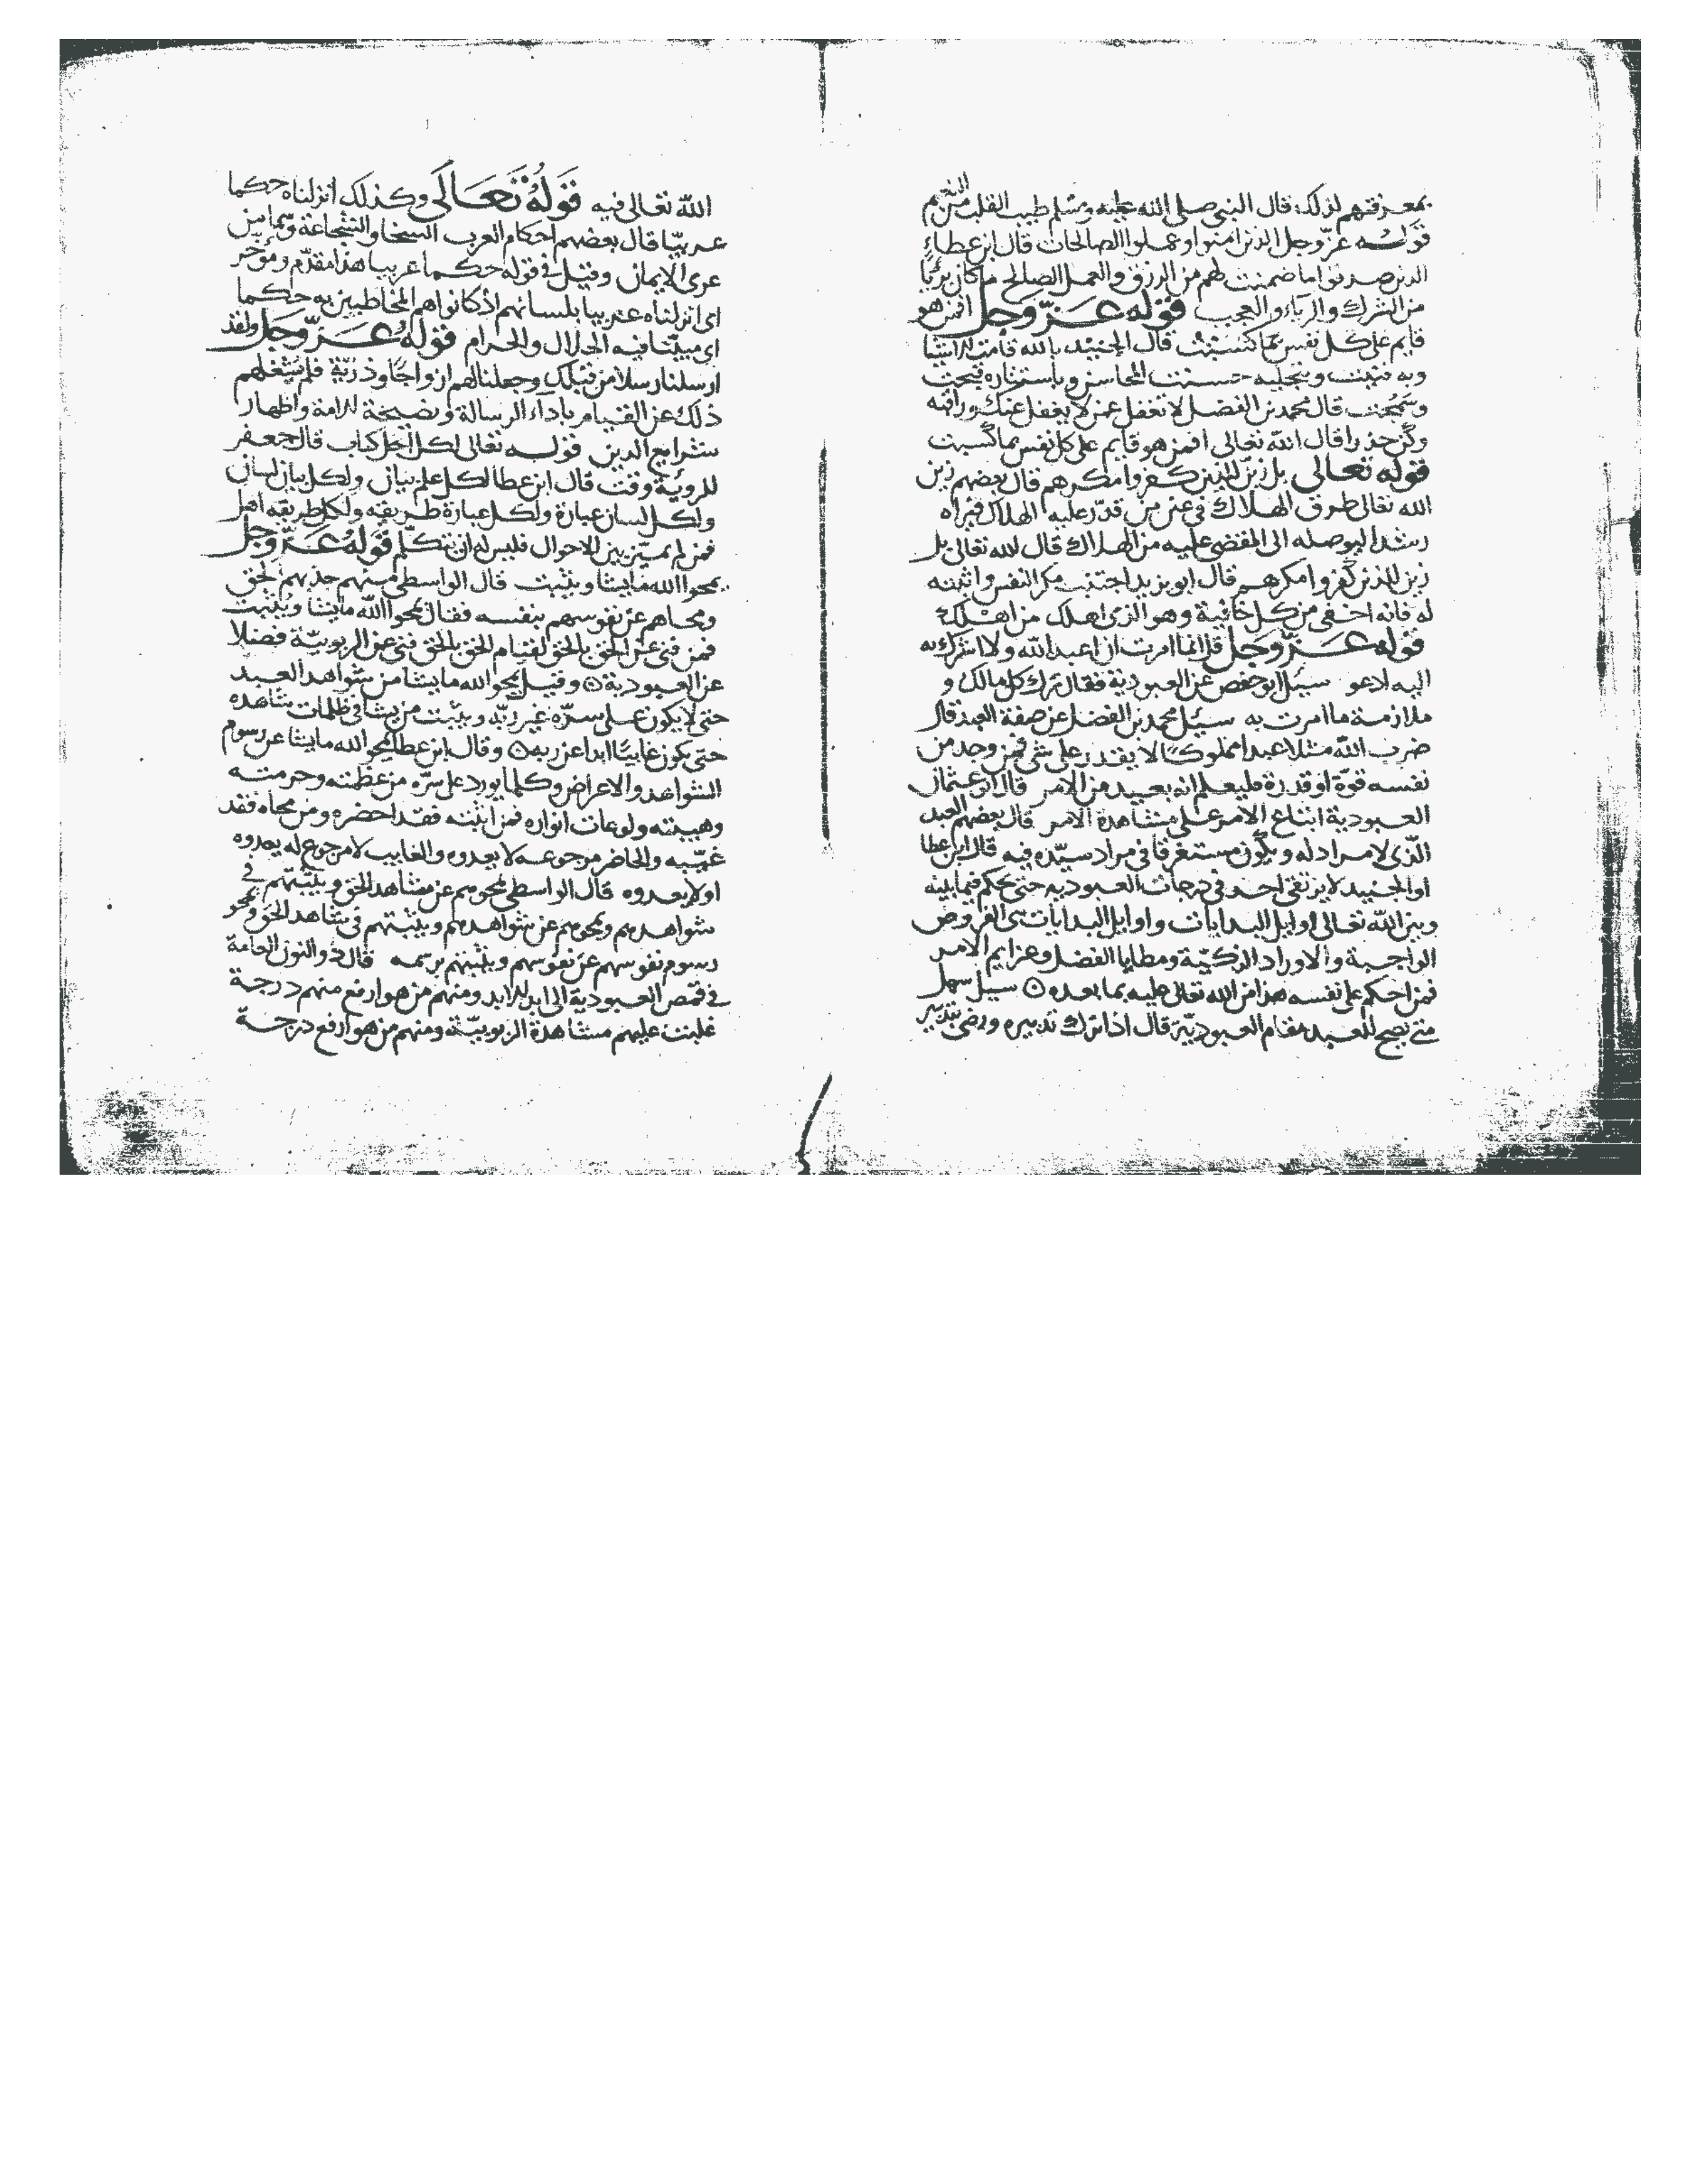 بمعرفتهم لذلك قال النبي صلى الله عليه وسلم طيب القلب من النعيم
قوله عز وجل الذين امنوا وعملوا الصالحات قال ابن عطاء
الذين صدقوا ما ضمنت لهم من الرزق والعمل الصالح ما كان بريا
من الشرك والرياء والعجب قوله عز وجل افمن هو
قايم على كل نفس بما كسبت قال الجنيد بالله قامت الاشيا
وبه فنيت وبتجليه حسنت المحاسن وباستتاره قبحت
وسمجت قال محمد بن الفضل لا تغفل عمن لا يغفل عنك وراقبه
وكن حذرا قال الله تعالى افمن هو قايم على كل نفس بما كسبت
قوله تعالى بل زين للذين كفروا مكرهم قال بعضهم زين
الله تعالى طرق الهلاك في عين من قدر عليه الهلاك فيراه
رشدا ليوصله الى المقضى عليه من الهلاك قال الله تعالى بل
زين للذين كفروا مكرهم قال ابو يزيد اجتنب مكر النفس وانتبه
له فانه اخفى من كل خافية وهو الذي اهلك من اهلك
قوله عز وجل قل انما امرت ان اعبد الله ولا اشرك به
اليه ادعو سيل ابو حفص عن العبودية فقال ترك كل مالك و
ملازمة ما امرت به سيل محمد بن الفضل عن صفة العبد قال
ضرب الله مثلا عبدا مملوكا لا يقدر على شي فمن وجد من
نفسه قوة او قدرة فليعلم انه بعيد من الامر قال ابو عثمان
العبودية اتباع الامر على مشاهدة الامر قال بعضهم العبد
الذي لا مراد له ويكون مستغرقا في مراد سيده فيه قال ابن عطا
او الجنيد لا يرتقي احد في درجات العبودية حتى يحكم فيما بينه
وبين الله تعالى اوايل البدايات واوايل البدايات هي الفروض
الواجبة والاوراد الزكية ومطايا الفضل وعزايم الامر
فمن احكم على نفسه هذا من الله تعالى عليه بما بعده سيل سهل
متى يصح للعبد مقام العبودية قال اذا ترك تدبيره ورضى بتدبير
الله تعالى فيه قوله تعالى وكذلك انزلناه حكما
عربيا قال بعضهم احكام العرب السخا والشجاعة وهما من
عرى الايمان وقيل في قوله حكما عربيا هذا مقدم ومؤخر
اى انزلناه عربيا بلسانهم اذ كانوا هم المخاطبين به حكما
اى مبينا فيه الحلال والحرام قوله عز وجل ولقد
ارسلنا رسلا من قبلك وجعلنا لهم ازواجا وذرية فلم يشغلهم
ذلك عن القيام باداء الرسالة ونصيحة الامة واظهار
شرايع الدين قوله تعالى لكل اجل كتاب قال جعفر
للروية وقت قال ابن عطا لكل علم بيان ولكل بيان لسان
ولكل لسان عبارة ولكل عبارة طريقه ولكل طريقه اهل
فمن لم يميز بين الاحوال فليس له ان يتكلم قوله عز وجل
يمحوا الله ما يشا ويثبت قال الواسطى منهم جذبهم الحق
ومحاهم عن نفوسهم بنفسه فقال يمحوا الله ما يشا ويثبت
فمن فنى عن الحق بالحق لقيام الحق بالحق فنى عن الربوبية فضلا
عن العبودية وقيل يمحو الله ما يشا من شواهد العبد
حتى لا يكون على سره غير ربه ويثبت من يشا في ظلمات شاهده
حتى يكون غايبا ابدا عن ربه وقال ابن عطا يمحو الله ما يشا عن رسوم
الشواهد والاعراض وكلما يورد على سره من عظمته وحرمته
وهيبته ولوعات انواره فمن اثبته فقد احضره ومن محاه فقد
غيبه والحاضر مرجوعه لا يعدوه والغايب لا مرجوع له يعدوه
او لا يعدوه قال الواسطى يمحوهم عن مشاهد الحق ويثبتهم في
شواهدهم ويمحوهم عن شواهدهم ويثبتهم في شاهد الحق ويمحو
رسوم نفوسهم عن نفوسهم ويثبتهم برسمه قال ذو النون العامة
في قمص العبودية الى ابد الابد ومنهم من هو ارفع منهم درجة
غلبت عليهم مشاهدة الربوبية ومنهم من هو ارفع درجة